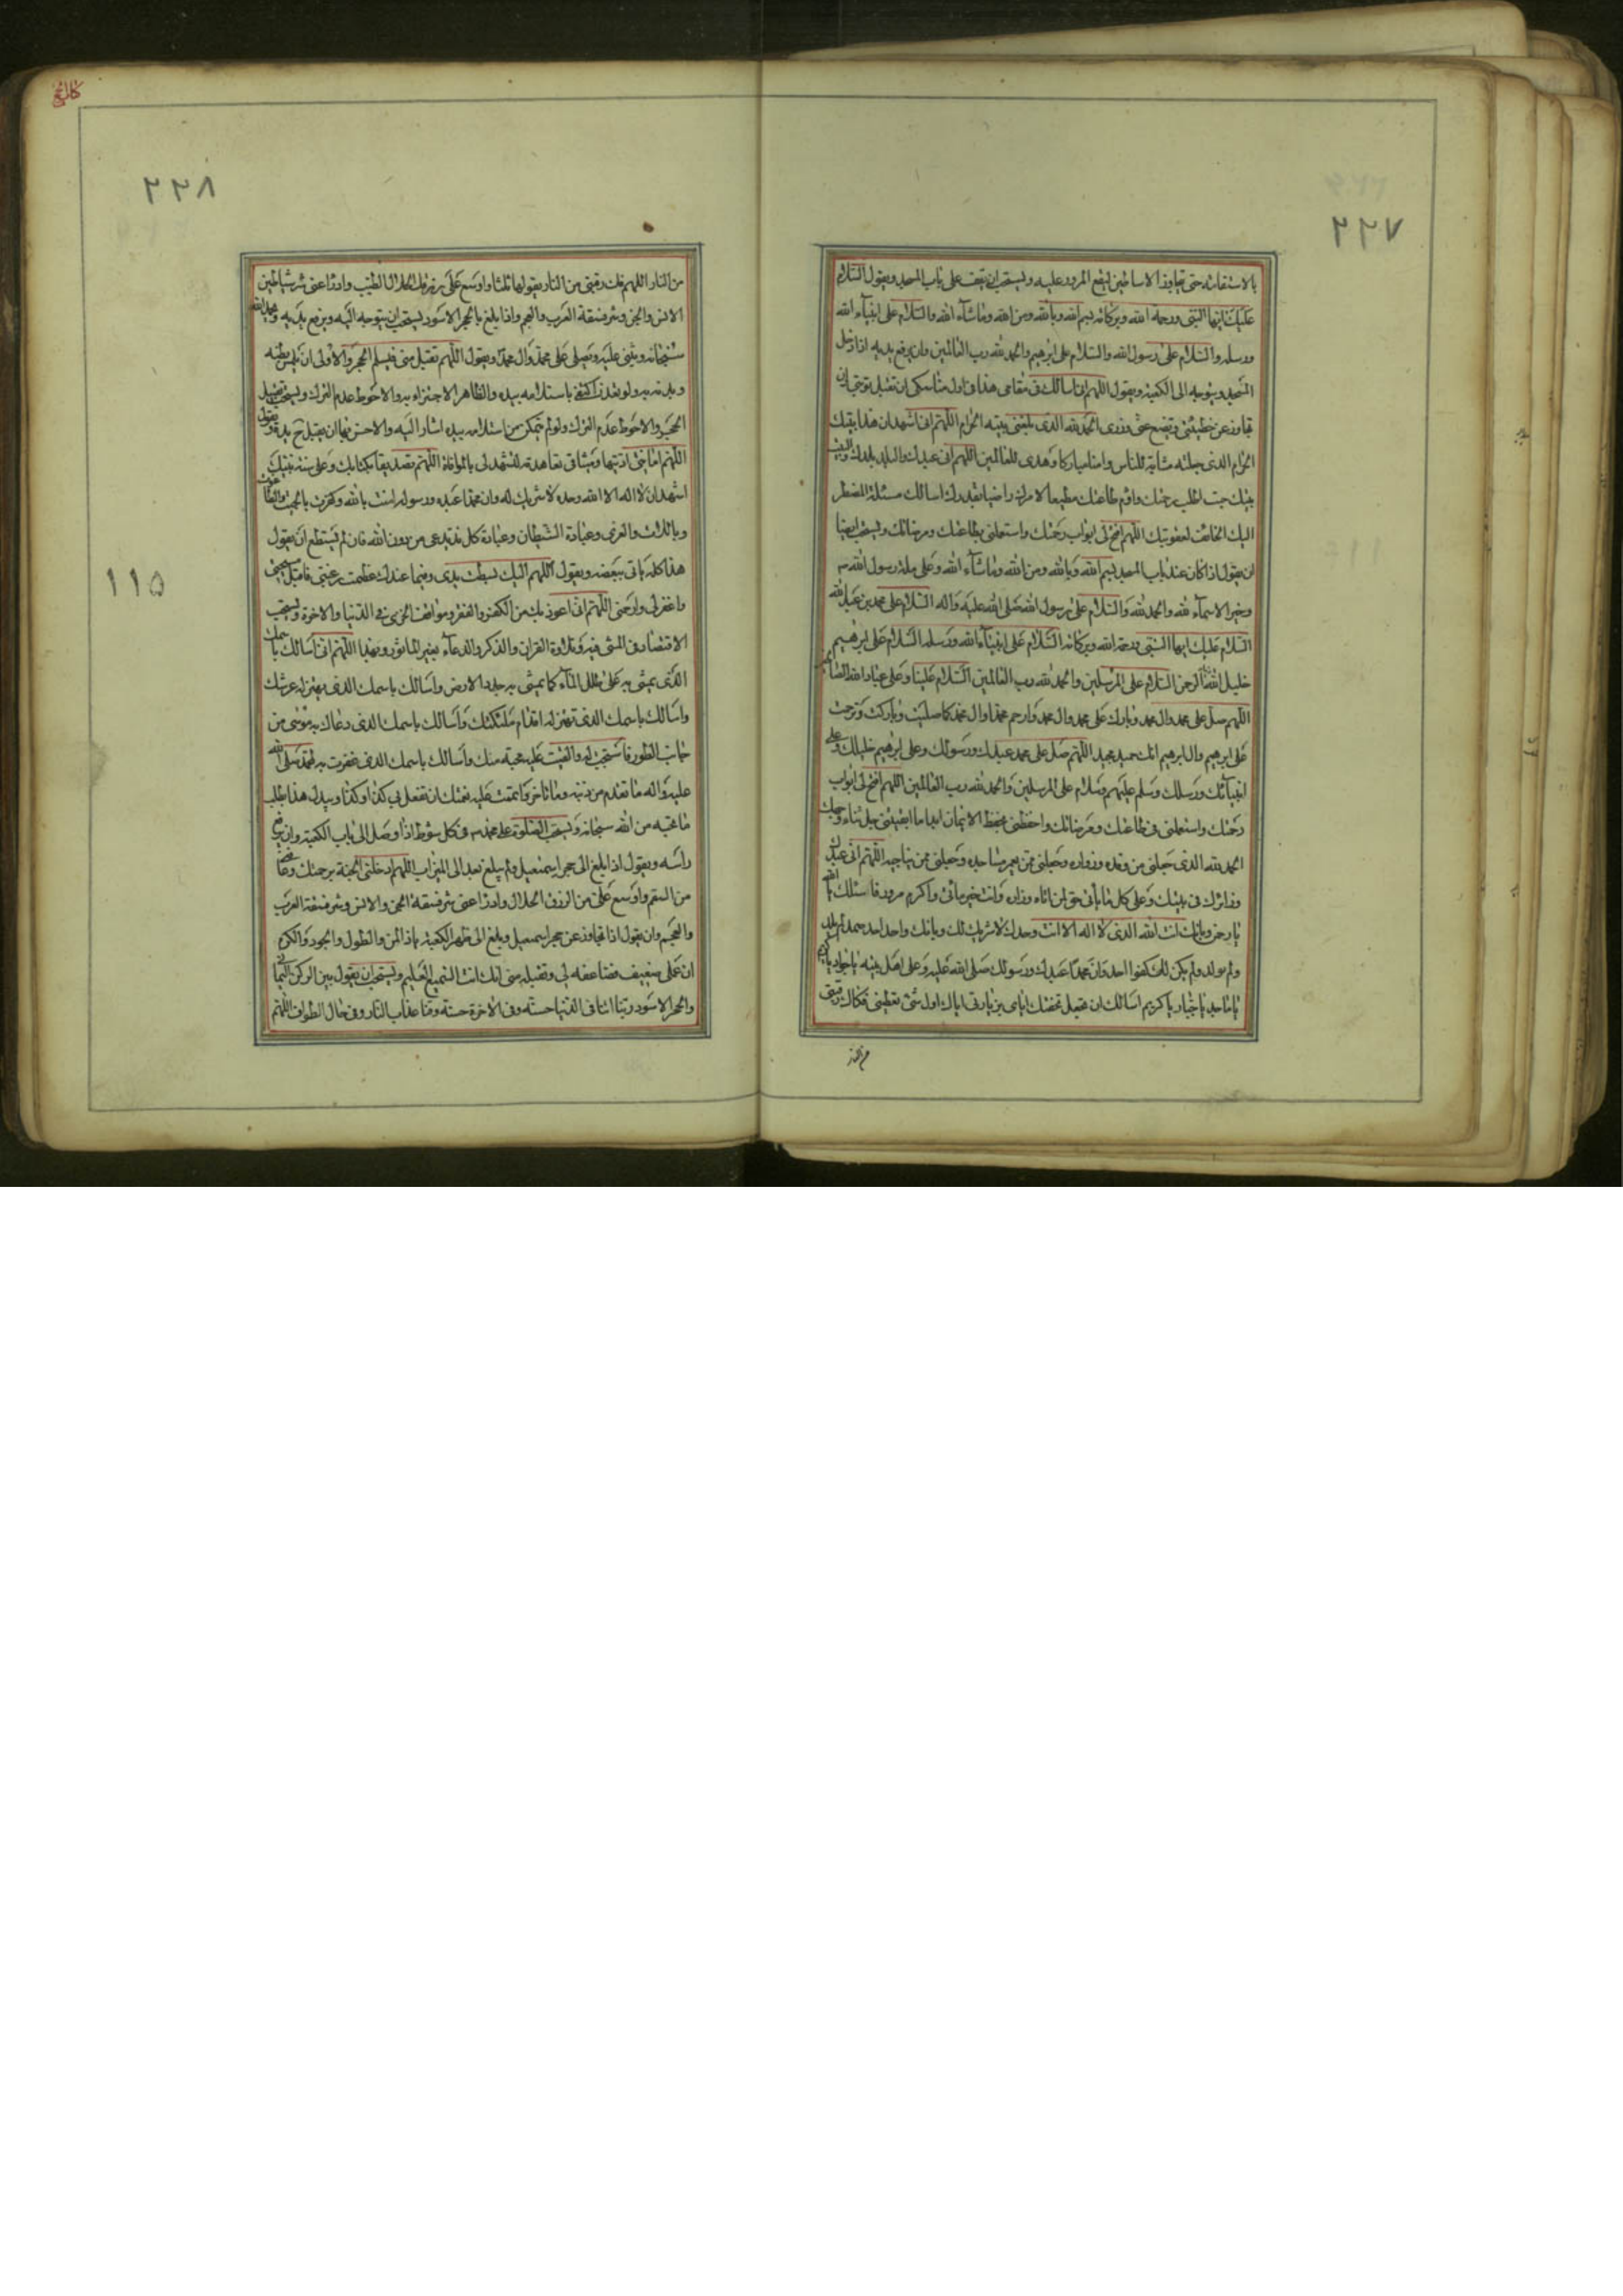 ٢٢٧
بالاستقامة حتى يتجاوز الاساطين ليقع المرور عليه ويستحب ان يقف على باب المسجد ويقول السّلام
عليك ايّها النّبى ورحمة الله وبركاته بسم الله وبالله ومن الله وما شآء الله والسّلام على انبيآء الله
ورسله والسّلام على رسول الله والسّلام على ابرهيم والحمد لله رب العالمين وان يرفع يديه اذا دخل
المسجد ويتوجه الى الكعبة ويقول اللهم انى اسالك فى مقامى هذا فى اول مناسكى ان تقبل توبتى وان
تجاوز عن خطيئتى وتضع عنى وزرى الحمد لله الذى بلغنى بيته الحرام اللهم انى اشهد ان هذا بيتك
الحرام الذى جعلته مثابة للناس وامنا مباركا وهدى للعالمين اللهم انى عبدك والبلد بلدك والبيت
بيتك جئت اطلب رحمتك واؤم طاعتك مطيعا لامرك راضيا بقدرك اسالك مسئلة المضطر
اليك الخائف لعقوبتك اللهم افتح لى ابواب رحمتك واستعملنى بطاعتك ومرضاتك ويستحب ايضا
ان يقول اذا كان عند باب المسجد بسم الله وبالله ومن الله وما شآء الله وعلى ملة رسول الله ص
وخير الاسمآء لله والحمد لله والسّلام على رسول الله صلى الله عليه واله السّلام على محمد بن عبد الله
السّلام عليك ايها النّبى ورحمة الله وبركاته السّلام على انبيآء الله ورسله السّلام على ابرهيم
خليل الله الرحمن السّلام على المرسلين والحمد لله رب العالمين السّلام علينا وعلى عباد الله الصالحين
اللهم صل على محمد وال محمد وبارك على محمد وال محمد وارحم محمدا وال محمد كما صليت وباركت وترحمت
على ابرهيم وال ابرهيم انك حميد مجيد اللهم صل على محمد عبدك ورسولك وعلى ابرهيم خليلك وعلى
انبيآئك ورسلك وسلم عليهم وسلام على المرسلين والحمد لله رب العالمين اللهم افتح لى ابواب
رحمتك واستعملنى فى طاعتك ومرضاتك واحفظنى بحفظ الايمان ابدا ما ابقيتنى جل ثناء وجهك
الحمد لله الذى جعلنى من وفده وزواره وجعلنى ممن يعمر مساجده وجعلنى ممن يناجيه اللهم انى عبدك
وزائرك فى بيتك وعلى كل ماتى حق لمن اتاه وزاره وانت خير ماتى واكرم مزور فاسئلك يا الله
يا رحمن وبانك انت الله الذى لا اله الا انت وحدك لا شريك لك وبانك واحد احد صمد لم يلد
ولم يولد ولم يكن لك كفوا احد وان محمدا عبدك ورسولك صلى الله عليه وعلى اهل بيته يا جواد يا كريم
يا ماجد يا جبار يا كريم اسالك ان تجعل تحفتك اياى بزيارتى اياك اول شئ تعطينى فكاك رقبتى
من النار
٢٢٨
من النار اللهم فك رقبتى من النار يقولها ثلثا واوسع على من رزقك الحلال الطيب وادرا عنى شر شياطين
الانس والجن وشر فسقة العرب والعجم واذا بلغ بالحجر الاسود يستحب ان يتوجه اليه ويرفع يديه ويحمد الله
سبحانه ويثنى عليه ويصلى على محمد وال محمد ويقول اللهم تقبل منى فيستلم الحجر والاولى ان يلمس بطنه
وبدنه به ولو تعذر اكتفى باستلامه بيده والظاهر الاجتزاء به والاحوط عدم الترك ويستحب تقبيل
الحجر والاحوط عدم الترك ولو لم يتمكن من استلامه بيده اشار اليه والاحسن فيها ان يقبل ح يده ويقول
اللهم امانتى اديتها وميثاقى تعاهدته لتشهد لى بالموافاة اللهم تصديقا بكتابك وعلى سنة نبيك
اشهد ان لا اله الا الله وحده لا شريك له وان محمدا عبده ورسوله امنت بالله وكفرت بالجبت والطاغوت
وباللات والعزى وعبادة الشيطان وعبادة كل ند يدعى من دون الله فان لم يستطع ان يقول
هذا كله ياتى ببعضه ويقول اللهم اليك بسطت يدى وفيما عندك عظمت رغبتى فاقبل سبحتى
واغفر لى وارحمنى اللهم انى اعوذ بك من الكفر والفقر ومواقف الخزى فى الدنيا والاخرة ويستحب
الاقتصاد فى المشى فيه وتلاوة القران والذكر والدعآء بغير الماثور وبهذا اللهم انى اسالك باسمك
الذى يمشى به على طلل المآء كما يمشى به على جدد الارض واسالك باسمك الذى يهتز له عرشك
واسالك باسمك الذى تهتز له اقدام ملئكتك واسالك باسمك الذى دعاك به موسى من
جانب الطور فاستجبت له والقيت عليه محبة منك واسالك باسمك الذى غفرت به لمحمد صلى الله
عليه واله ما تقدم من ذنبه وما تاخر واتممت عليه نعمتك ان تفعل بى كذا وكذا وبدل هذا يطلب
ما يحبه من الله سبحانه ويستحب الصلوة على محمد ص فى كل شوط اذا وصل الى باب الكعبة وان يرفع
راسه ويقول اذا بلغ الى حجر اسمعيل ولم يبلغ بعد الى الميزاب اللهم ادخلنى الجنة برحمتك وعافنى
من السقم واوسع على من الرزق الحلال وادرا عنى شر فسقة الجن والانس وشر فسقة العرب
والعجم وان يقول اذا تجاوز عن حجر اسمعيل وبلغ الى ظهر الكعبة يا ذا المن والطول والجود والكرم
ان عملى ضعيف فضاعفه لى وتقبله منى انك انت السميع العليم ويستحب ان يقول بين الركن اليمانى
والحجر الاسود ربنا اتنا فى الدنيا حسنة وفى الاخرة حسنة وقنا عذاب النار وفى حال الطواف اللهم
١١٥